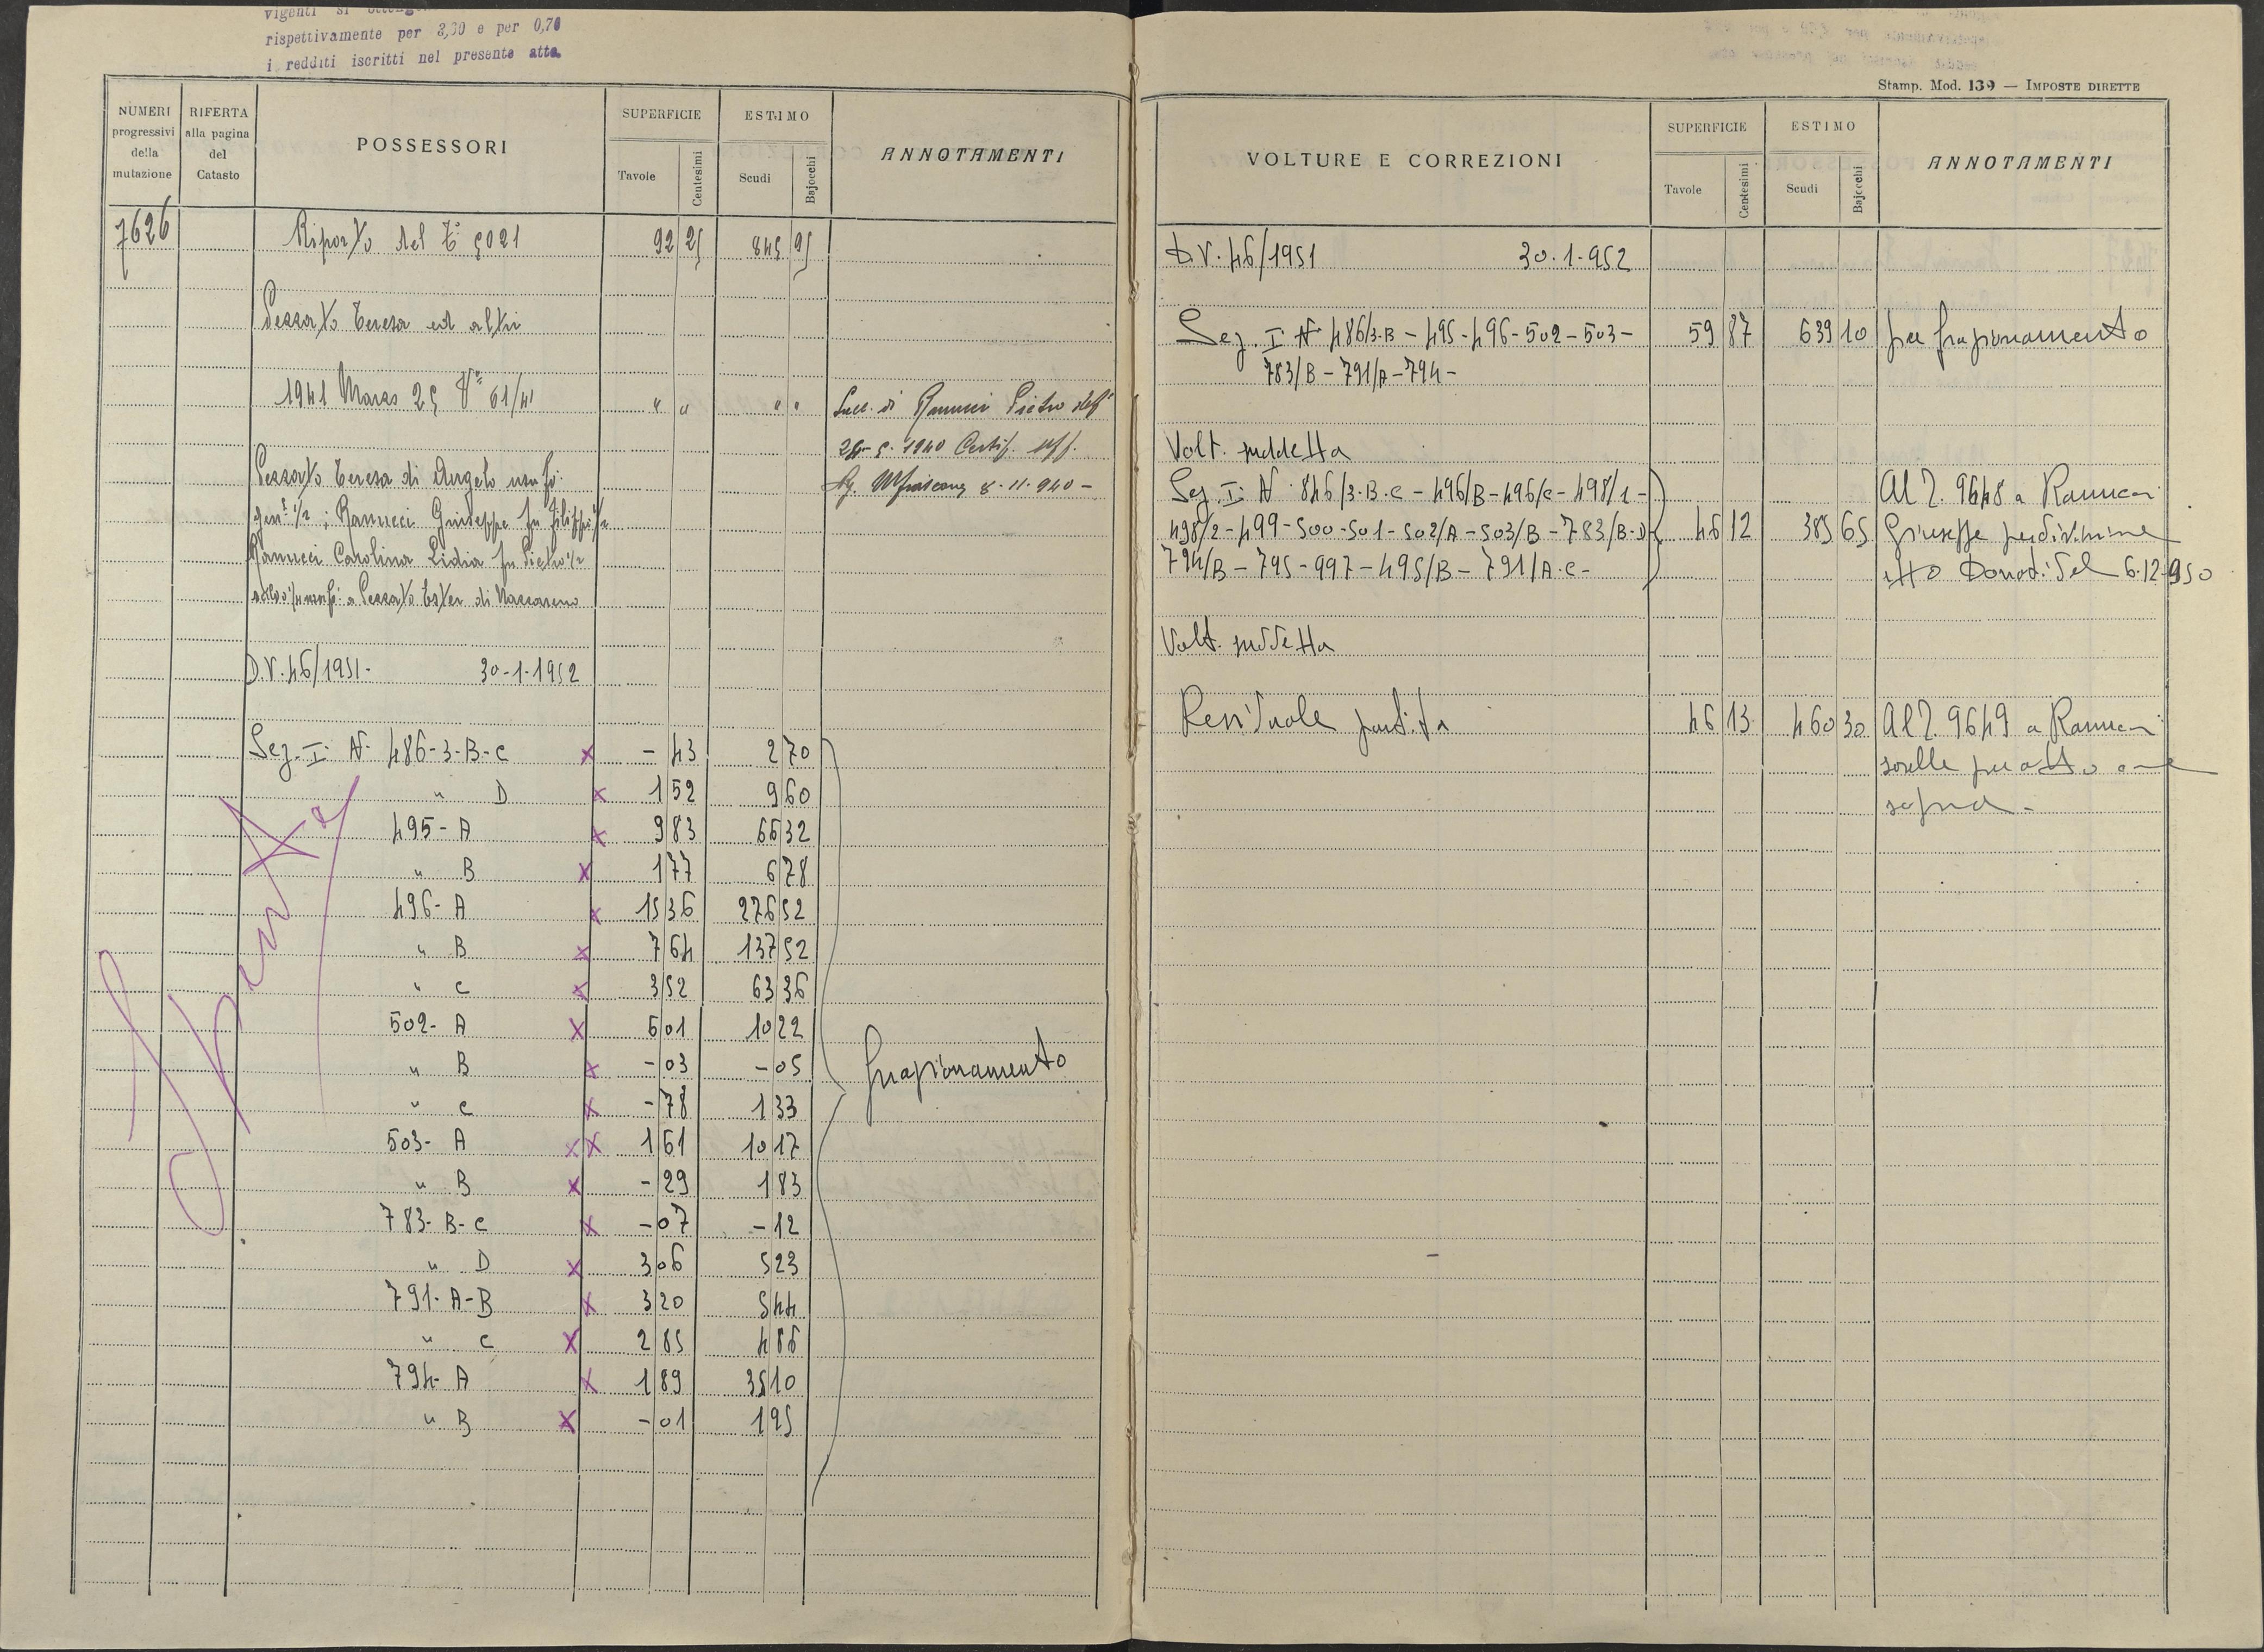 rispettivamente per 3,30 e per 0,70
i redditi iscritti nel presente atto.
NUMERI progressivi della mutazione
RIFERTA alla pagina del Catasto
POSSESSORI
SUPERFICIE
Tavole
Centesimi
ESTIMO
Scudi
Bajocchi
ANNOTAMENTI
7626 Riporto del 5021 92 25 845 95
Pezzato Teresa ed altri
1941 Marzo 25 V^a 61/41 " " " " Succ. di Ranucci Pietro
1940 Certif. Uff.
8-11-940-
Pezzato Teresa di Angelo usuf.
gen. 1/2 ; Ranucci Giuseppe fu Filippo 1/2
Ranucci Carolina Lidia fu Pietro 1/2
a Pezzato Ester di Nazzareno
D.V. 46/1951- 30-1-1952
Sez. I: N. 486-3-B-C x - 43 2 70
" D x 1 52 9 60
495- A x 9 83 66 32
" B x 1 77 6 78
496- A x 15 36 276 52
" B x 7 64 137 52
" C x 3 52 63 36
502- A x 6 01 10 22
" B x - 03 - 05
" C x - 78 1 33
503- A x x 1 61 10 17
" B x - 29 1 83
783- B-C x - 07 - 12
" D x 3 06 5 23
791- A-B x 3 20 5 44
" C x 2 85 4 86
794- A x 1 89 35 10
" B x - 01 1 95
frazionamento
Spenta
Stamp. Mod. 139 — IMPOSTE DIRETTE
VOLTURE E CORREZIONI
SUPERFICIE
Tavole
Centesimi
ESTIMO
Scudi
Bajocchi
ANNOTAMENTI
D.V. 46/1951 30.1.952
Sez. I N. 486/3-B - 495-496-502-503- 59 87 639 10 per frazionamento
783/B - 791/A - 794-
Volt. suddetta
Sez. I: N. 846/3.B.C - 496/B-496/C-498/1- Al 9648 a Ranucci
498/2-499-500-501-502/A-503/B-783/B-D- 46 12 385 65 Giuseppe per divisione
794/B - 795-997-495/B-791/A.C- atto Donati del 6.12.950
Volt. suddetta
Residuale partita 46 13 460 30 Al 9649 a Ranucci
sorelle per atto come
sopra-